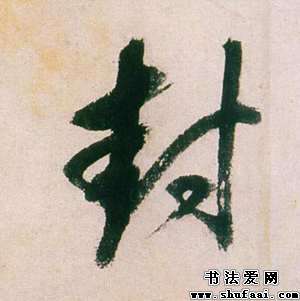 封
书法爱网
www.shufaai.com